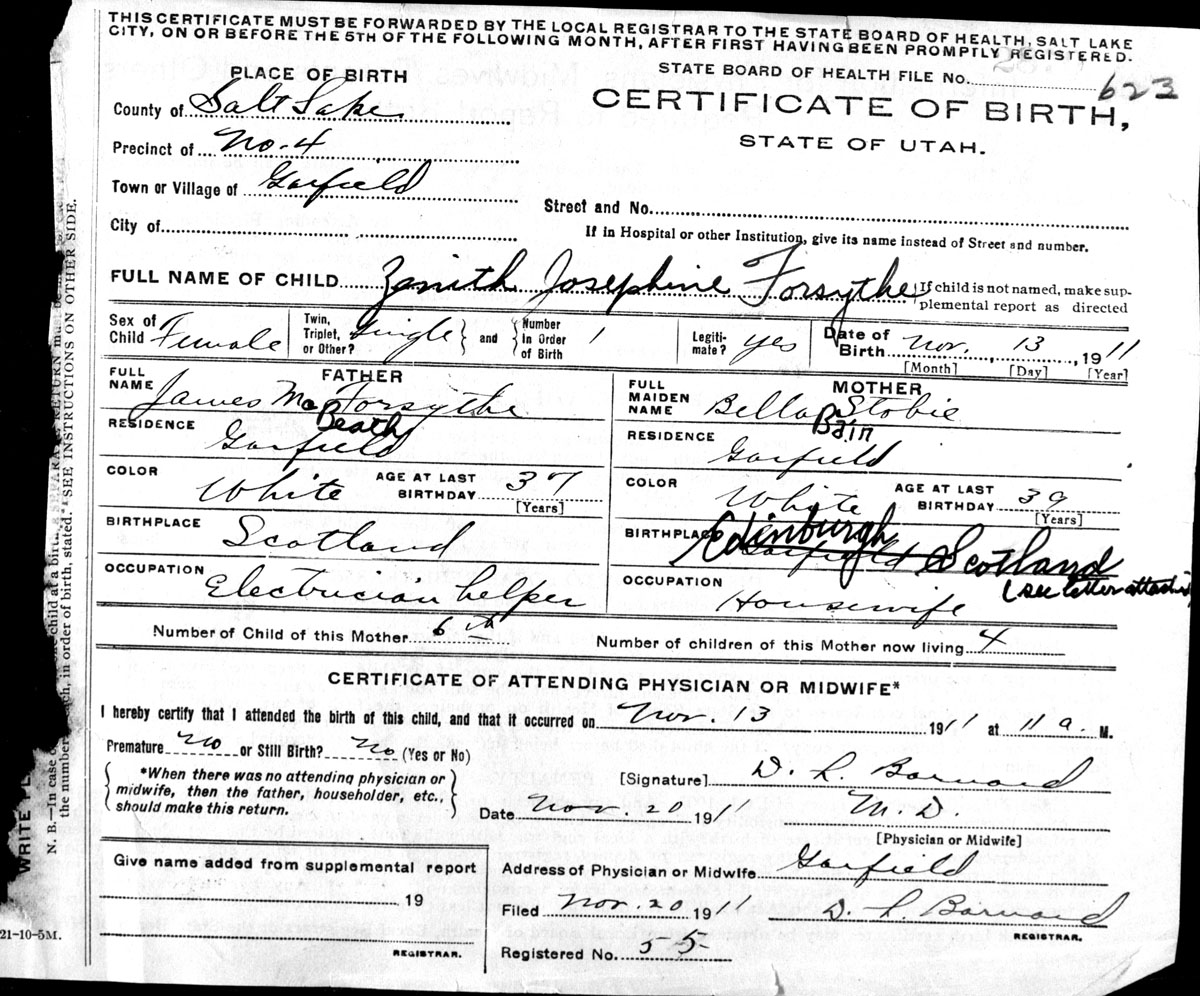 THIS CERTIFICATE MUST BE FORWARDED BY THE LOCAL REGISTRAR TO THE STATE BOARD OF HEALTH, SALT LAKE
CITY, ON OR BEFORE THE 5TH OF THE FOLLOWING MONTH, AFTER FIRST HAVING BEEN PROMPTLY REGISTERED.
STATE BOARD OF HEALTH FILE No. 623
PLACE OF BIRTH
CERTIFICATE OF BIRTH,
STATE OF UTAH.
County of Salt Lake
Precinct of No. 4
Town or Village of Garfield
Street and No.
City of
If in Hospital or other Institution, give its name instead of Street and number.
FULL NAME OF CHILD Zenith Josephine Forsythe
If child is not named, make sup-
plemental report as directed
Sex of Child Female
Twin, Triplet, or Other? Single and Number in Order of Birth 1
Legiti-mate? yes
Date of Birth Nov. 13, 1911
[Month] [Day] [Year]
FATHER
FULL NAME James Mc Forsythe
Beath
RESIDENCE Garfield
COLOR White
AGE AT LAST BIRTHDAY 37
[Years]
BIRTHPLACE Scotland
OCCUPATION Electrician helper
MOTHER
FULL MAIDEN NAME Bella B Stobie
Bain
RESIDENCE Garfield
COLOR White
AGE AT LAST BIRTHDAY 39
[Years]
BIRTHPLACE Edinburgh Garfield Scotland
(see letter attached)
OCCUPATION Housewife
Number of Child of this Mother 6th
Number of children of this Mother now living 4
CERTIFICATE OF ATTENDING PHYSICIAN OR MIDWIFE*
I hereby certify that I attended the birth of this child, and that it occurred on Nov. 13 1911 at 11 a. M.
Premature No or Still Birth? No (Yes or No)
*When there was no attending physician or
midwife, then the father, householder, etc.,
should make this return.
[Signature] D. L. Barnard
Date Nov. 20 1911 M. D.
[Physician or Midwife]
Give name added from supplemental report
19
REGISTRAR.
Address of Physician or Midwife Garfield
Filed Nov. 20 1911 D. L. Barnard
REGISTRAR.
Registered No. 55
21-10-5M.
WRITE PL
N. B.—In case o child at a birth, a SEPARATE RETURN must be
the number each, in order of birth, stated. *SEE INSTRUCTIONS ON OTHER SIDE.